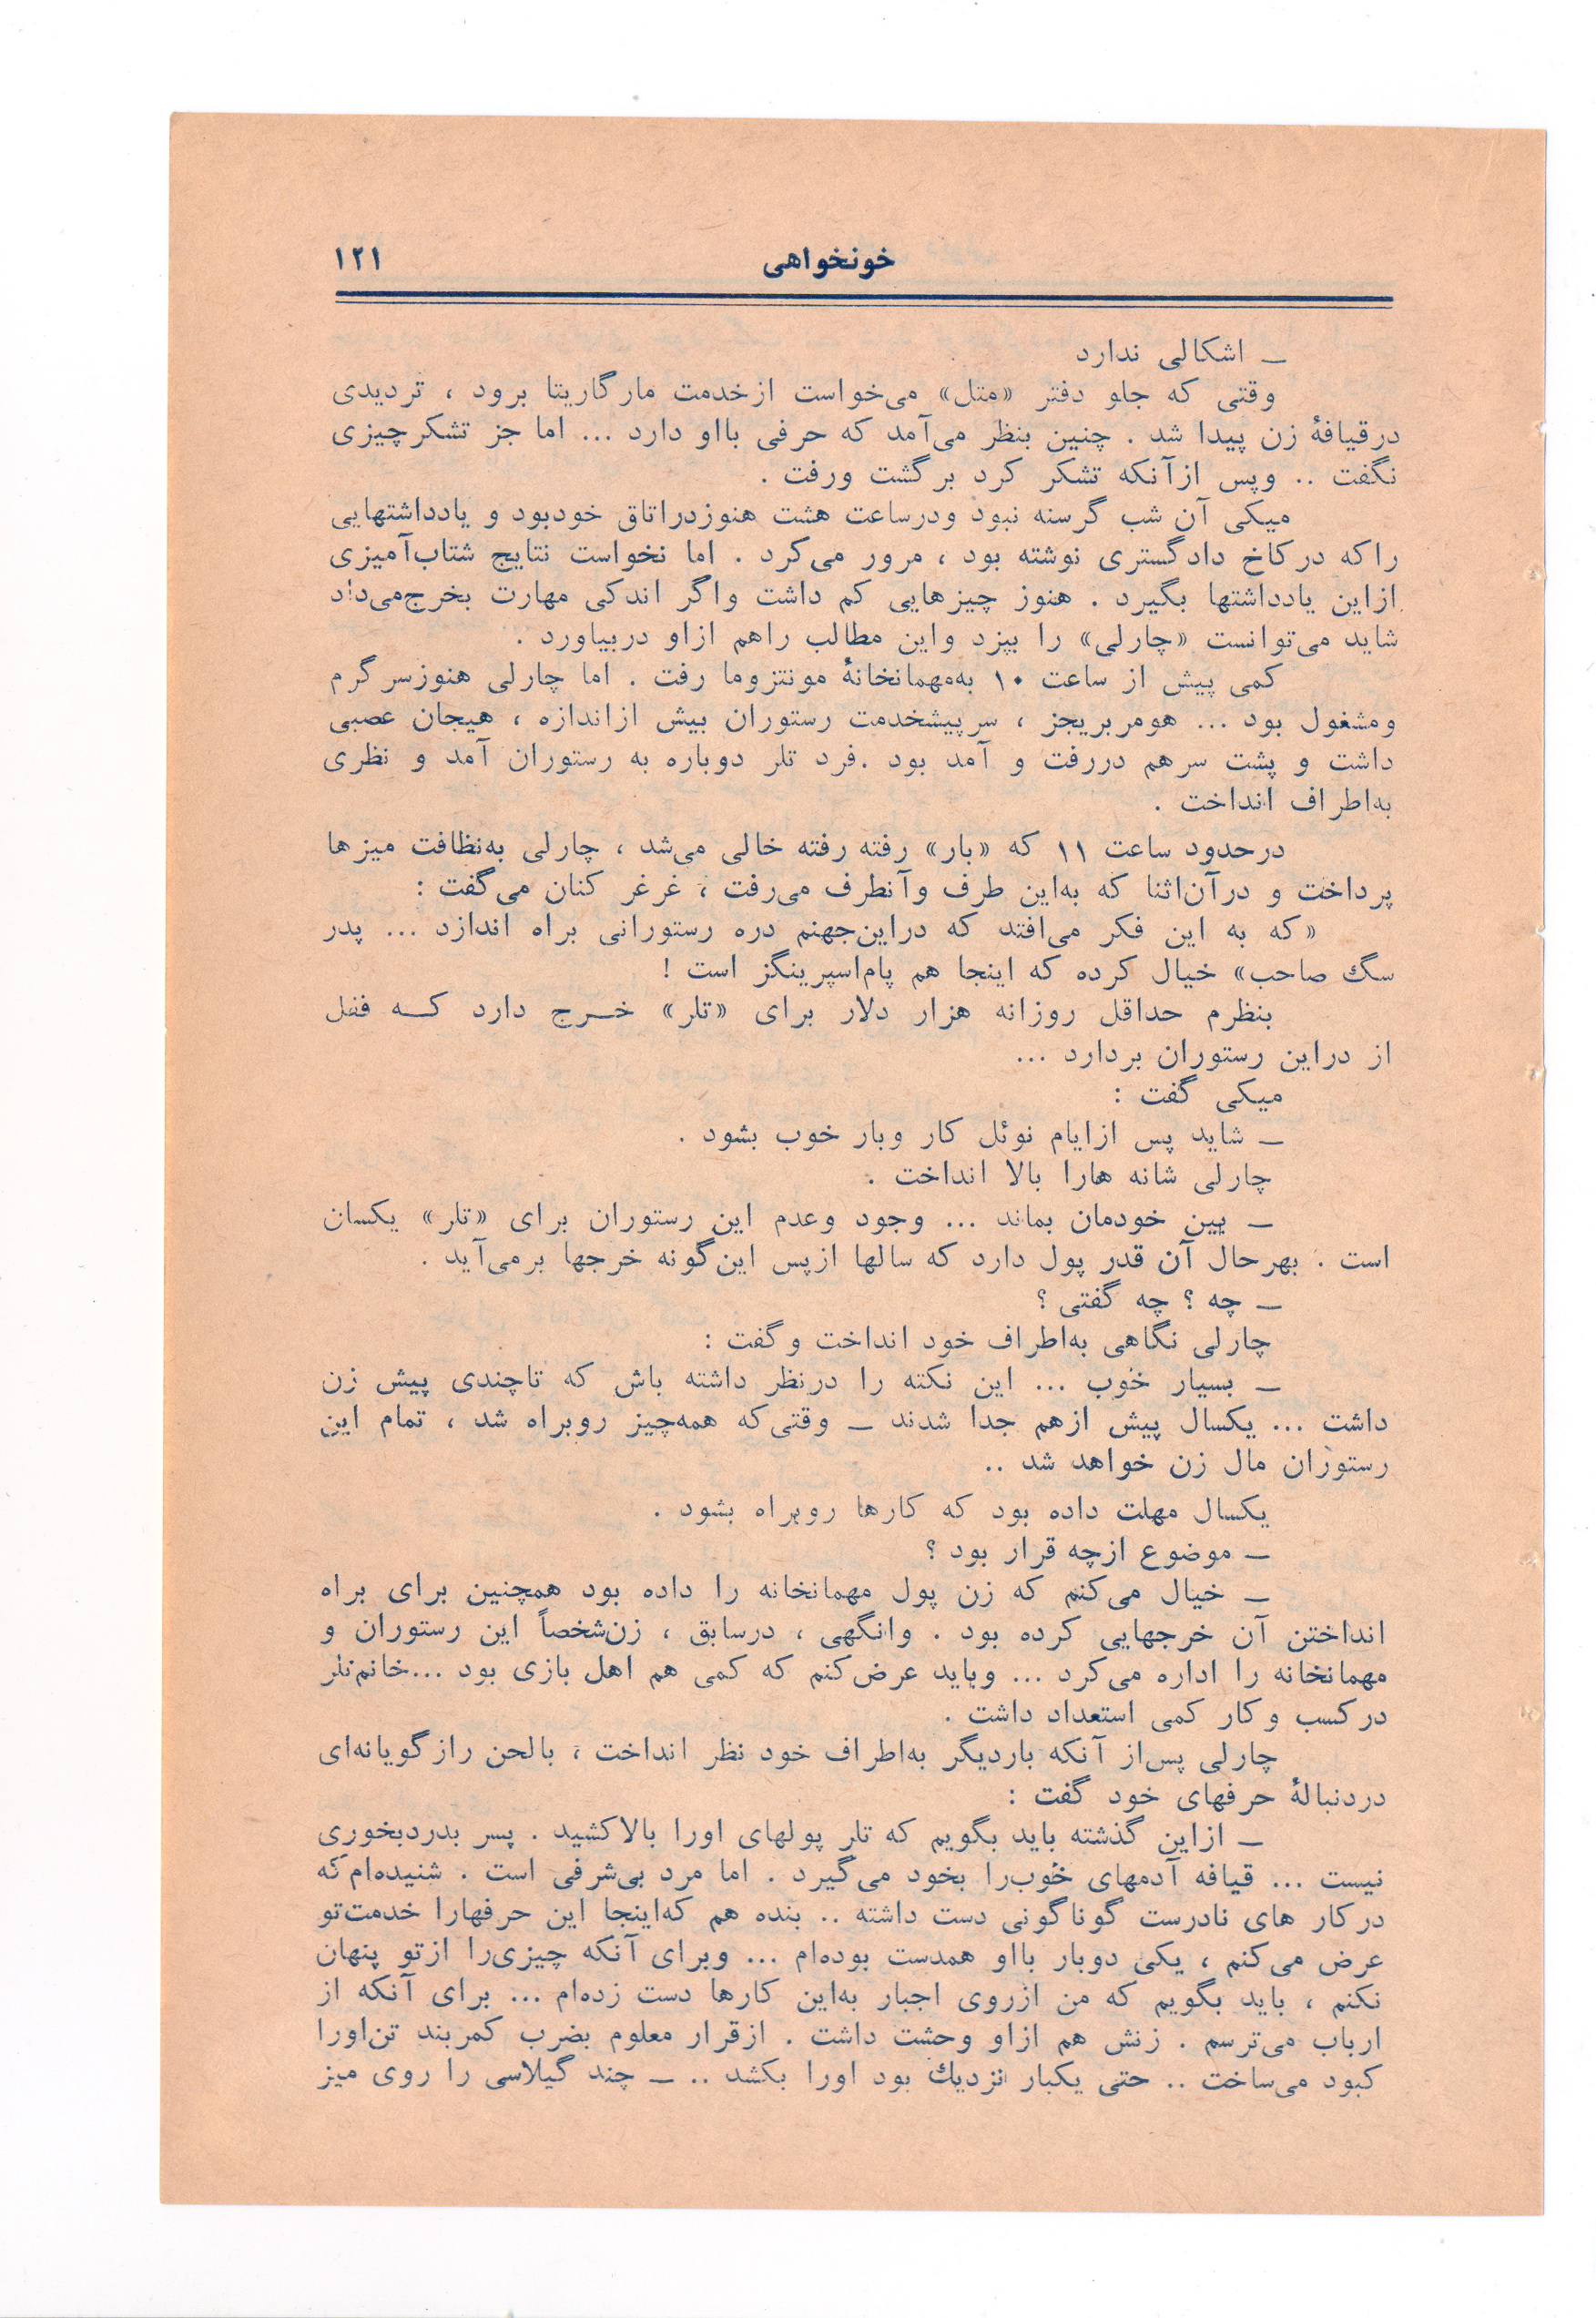 خونخواهی ۱۲۱
ـ اشکالی ندارد
وقتی که جلو دفتر «متل» می‌خواست ازخدمت مارگاریتا برود ، تردیدی
درقیافهٔ زن پیدا شد . چنین بنظر می‌آمد که حرفی بااو دارد ... اما جز تشکرچیزی
نگفت .. وپس ازآنکه تشکر کرد برگشت ورفت .
میکی آن شب گرسنه نبود ودرساعت هشت هنوزدراتاق خودبود و یادداشتهایی
راکه درکاخ دادگستری نوشته بود ، مرور می‌کرد . اما نخواست نتایج شتاب‌آمیزی
ازاین یادداشتها بگیرد . هنوز چیزهایی کم داشت واگر اندکی مهارت بخرج‌می‌داد
شاید می‌توانست «چارلی» را بپزد واین مطالب راهم ازاو دربیاورد .
کمی پیش از ساعت ۱۰ به‌مهمانخانهٔ مونتزوما رفت . اما چارلی هنوزسرگرم
ومشغول بود ... هومربریجز ، سرپیشخدمت رستوران بیش ازاندازه ، هیجان عصبی
داشت و پشت سرهم دررفت و آمد بود .فرد تلر دوباره به رستوران آمد و نظری
به‌اطراف انداخت .
درحدود ساعت ۱۱ که «بار» رفته رفته خالی می‌شد ، چارلی به‌نظافت میزها
پرداخت و درآن‌اثنا که به‌این طرف وآنطرف می‌رفت ، غرغر کنان می‌گفت :
«که به این فکر می‌افتد که دراین‌جهنم دره رستورانی براه اندازد ... پدر
سگ صاحب» خیال کرده که اینجا هم پام‌اسپرینگز است !
بنظرم حداقل روزانه هزار دلار برای «تلر» خرج دارد که قفل
از دراین رستوران بردارد ...
میکی گفت :
ـ شاید پس ازایام نوئل کار وبار خوب بشود .
چارلی شانه هارا بالا انداخت .
ـ بین خودمان بماند ... وجود وعدم این رستوران برای «تلر» یکسان
است . بهرحال آن قدر پول دارد که سالها ازپس این‌گونه خرجها برمی‌آید .
ـ چه ؟ چه گفتی ؟
چارلی نگاهی به‌اطراف خود انداخت وگفت :
ـ بسیار خوب ... این نکته را درنظر داشته باش که تاچندی پیش زن
داشت ... یکسال پیش ازهم جدا شدند ـ وقتی‌که همه‌چیز روبراه شد ، تمام این
رستوران مال زن خواهد شد ..
یکسال مهلت داده بود که کارها روبراه بشود .
ـ موضوع ازچه قرار بود ؟
ـ خیال می‌کنم که زن پول مهمانخانه را داده بود همچنین برای براه
انداختن آن خرجهایی کرده بود . وانگهی ، درسابق ، زن‌شخصاً این رستوران و
مهمانخانه را اداره می‌کرد ... وباید عرض‌کنم که کمی هم اهل بازی بود ...خانم‌تلر
درکسب وکار کمی استعداد داشت .
چارلی پس‌از آنکه باردیگر به‌اطراف خود نظر انداخت ، بالحن رازگویانه‌ای
دردنبالهٔ حرفهای خود گفت :
ـ ازاین گذشته باید بگویم که تلر پولهای اورا بالاکشید . پسر بدردبخوری
نیست ... قیافه آدمهای خوب‌را بخود می‌گیرد . اما مرد بی‌شرفی است . شنیده‌ام که
درکار های نادرست گوناگونی دست داشته .. بنده هم که‌اینجا این حرفهارا خدمت‌تو
عرض می‌کنم ، یکی دوبار بااو همدست بوده‌ام ... وبرای آنکه چیزی‌را ازتو پنهان
نکنم ، باید بگویم که من ازروی اجبار به‌این کارها دست زده‌ام ... برای آنکه از
ارباب می‌ترسم . زنش هم ازاو وحشت داشت . ازقرار معلوم بضرب کمربند تن‌اورا
کبود می‌ساخت .. حتی یکبار نزدیك بود اورا بکشد .. ـ چند گیلاسی را روی میز